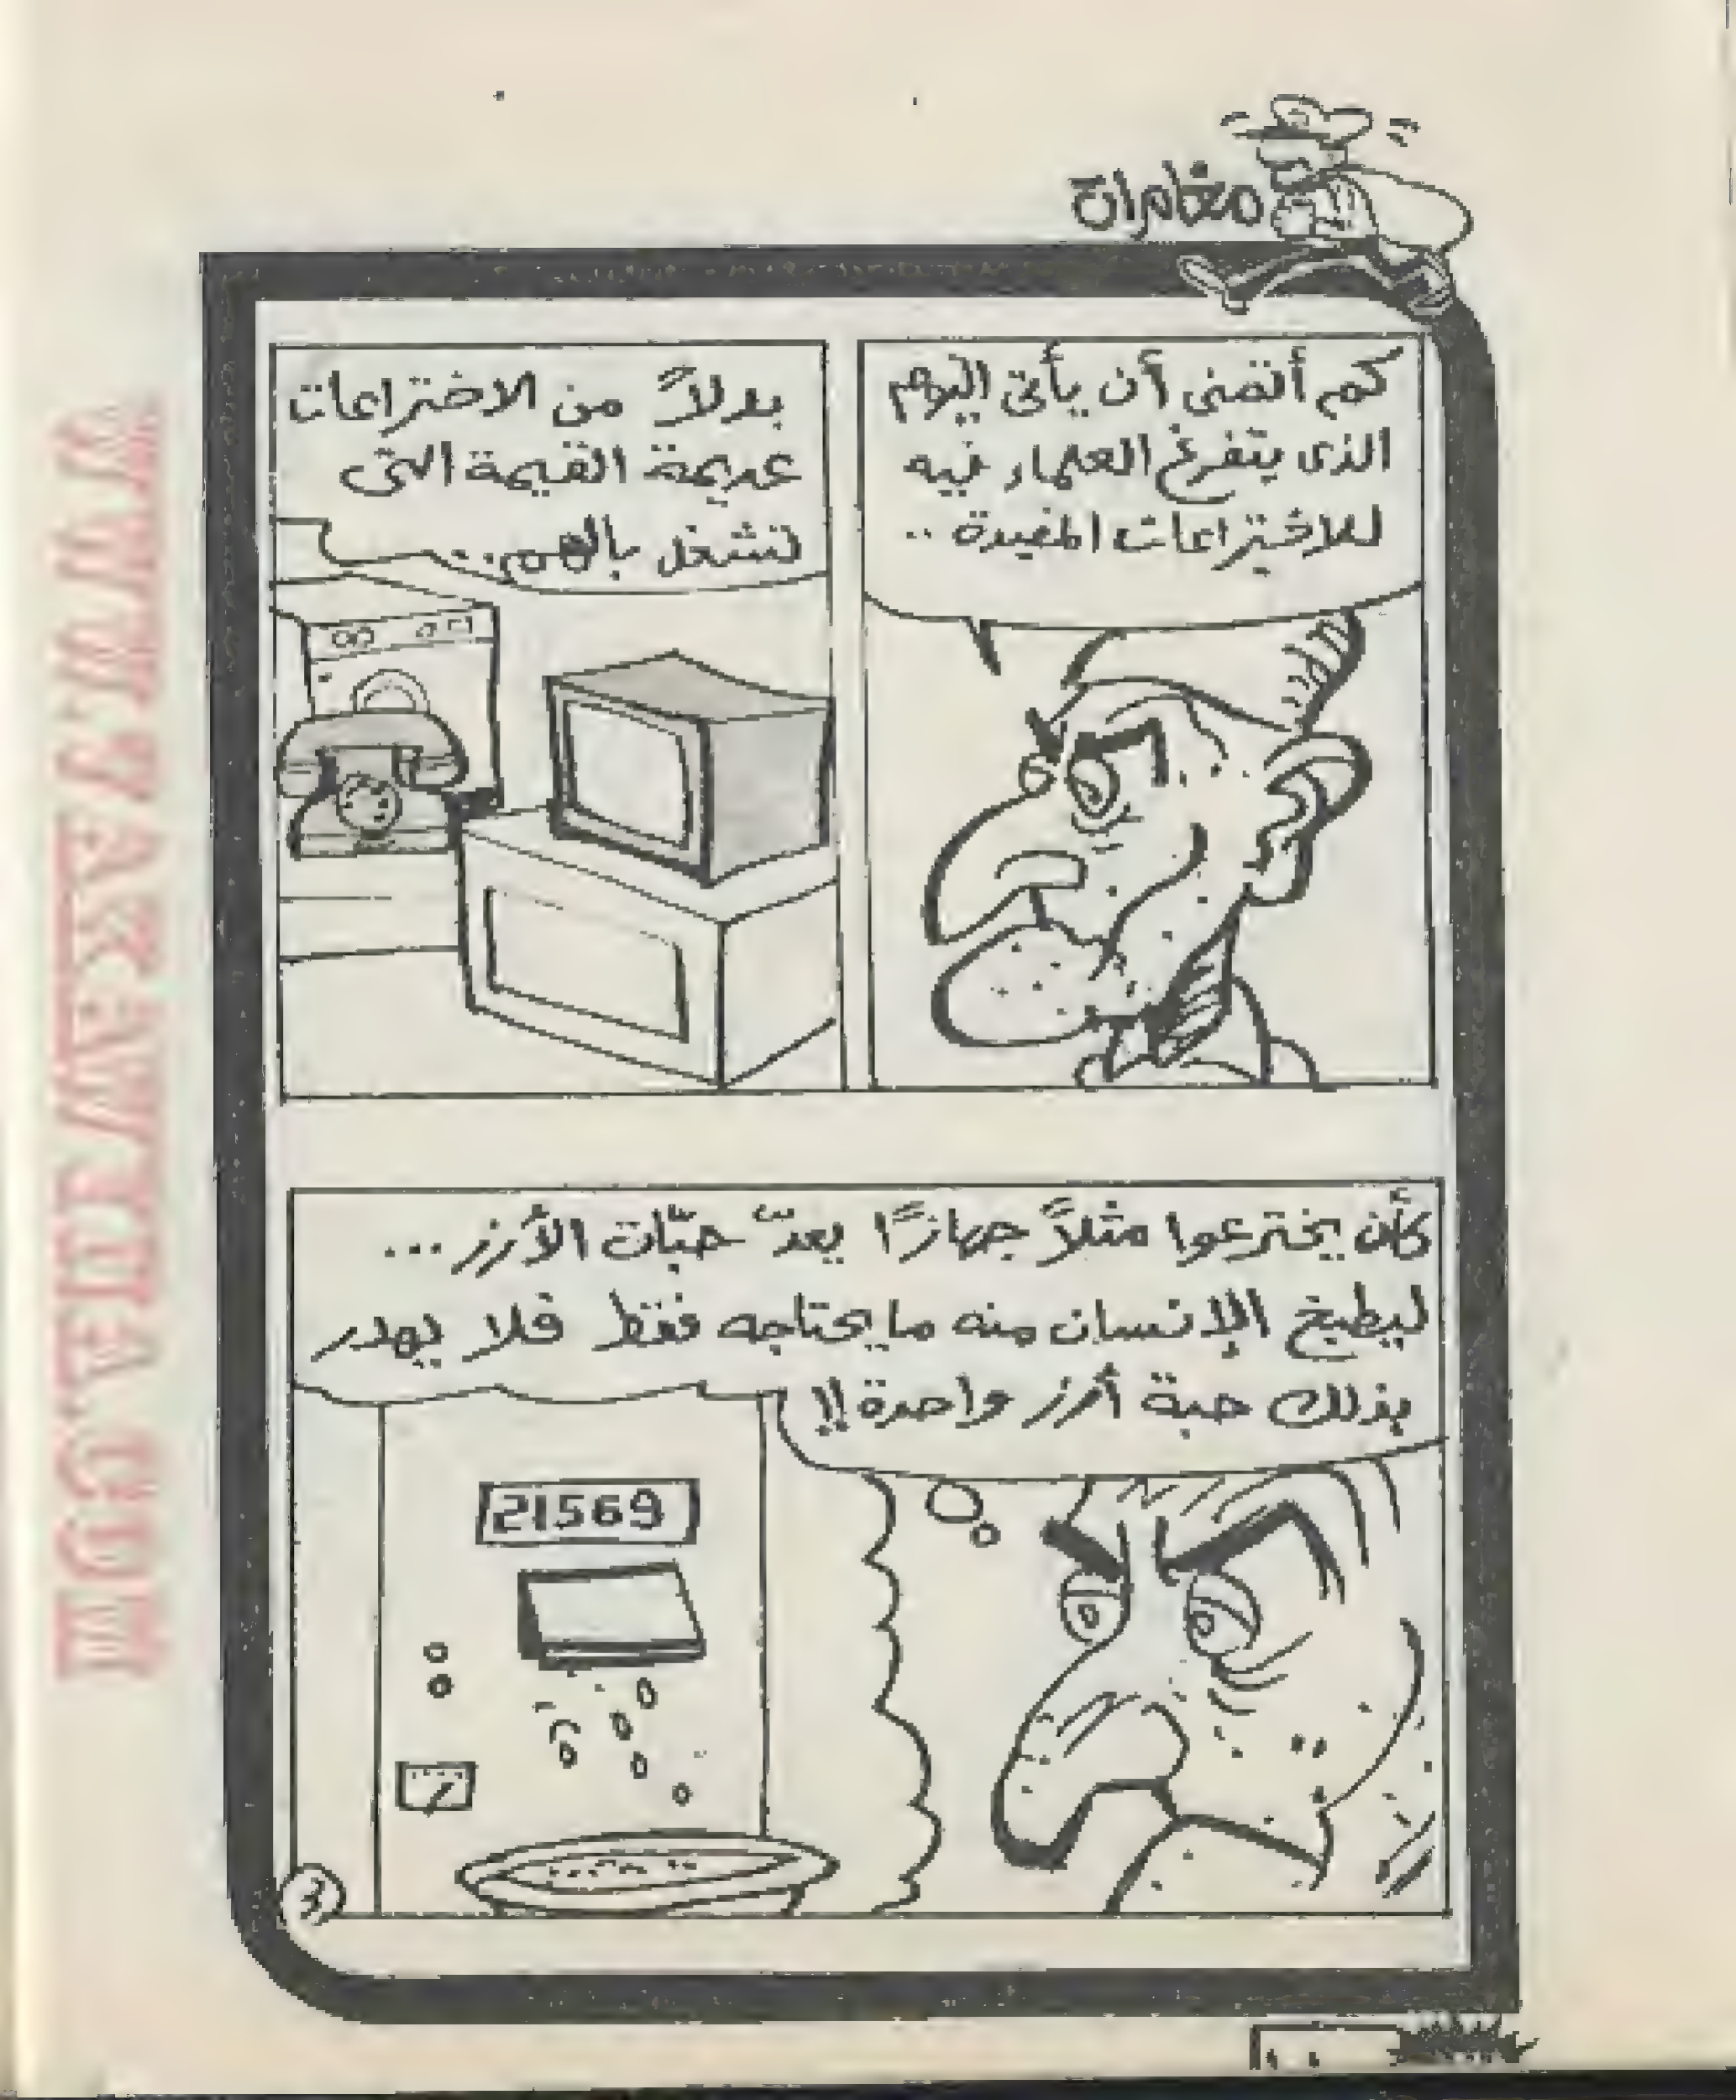 مغامرات
كم أتمنى أن يأتى اليوم
الذى يتفرغ العلماء فيه
للاختراعات المفيدة ..
بدلاً من الاختراعات
عديمة القيمة التى
تشغل بالهم..
كأن يخترعوا مثلاً جهازًا يعدّ حبّات الأرز...
ليطبخ الإنسان منه ما يحتاجه فقط فلا يهدر
بذلك حبة أرز واحدة!!
21569
3